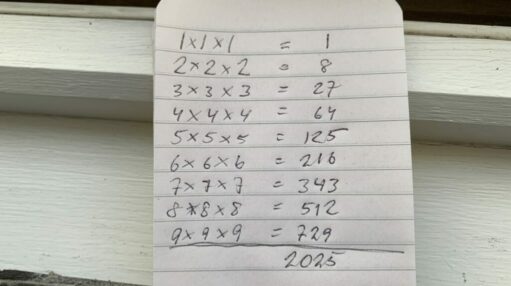 1×1×1 = 1
2×2×2 = 8
3×3×3 = 27
4×4×4 = 64
5×5×5 = 125
6×6×6 = 216
7×7×7 = 343
8×8×8 = 512
9×9×9 = 729
2025